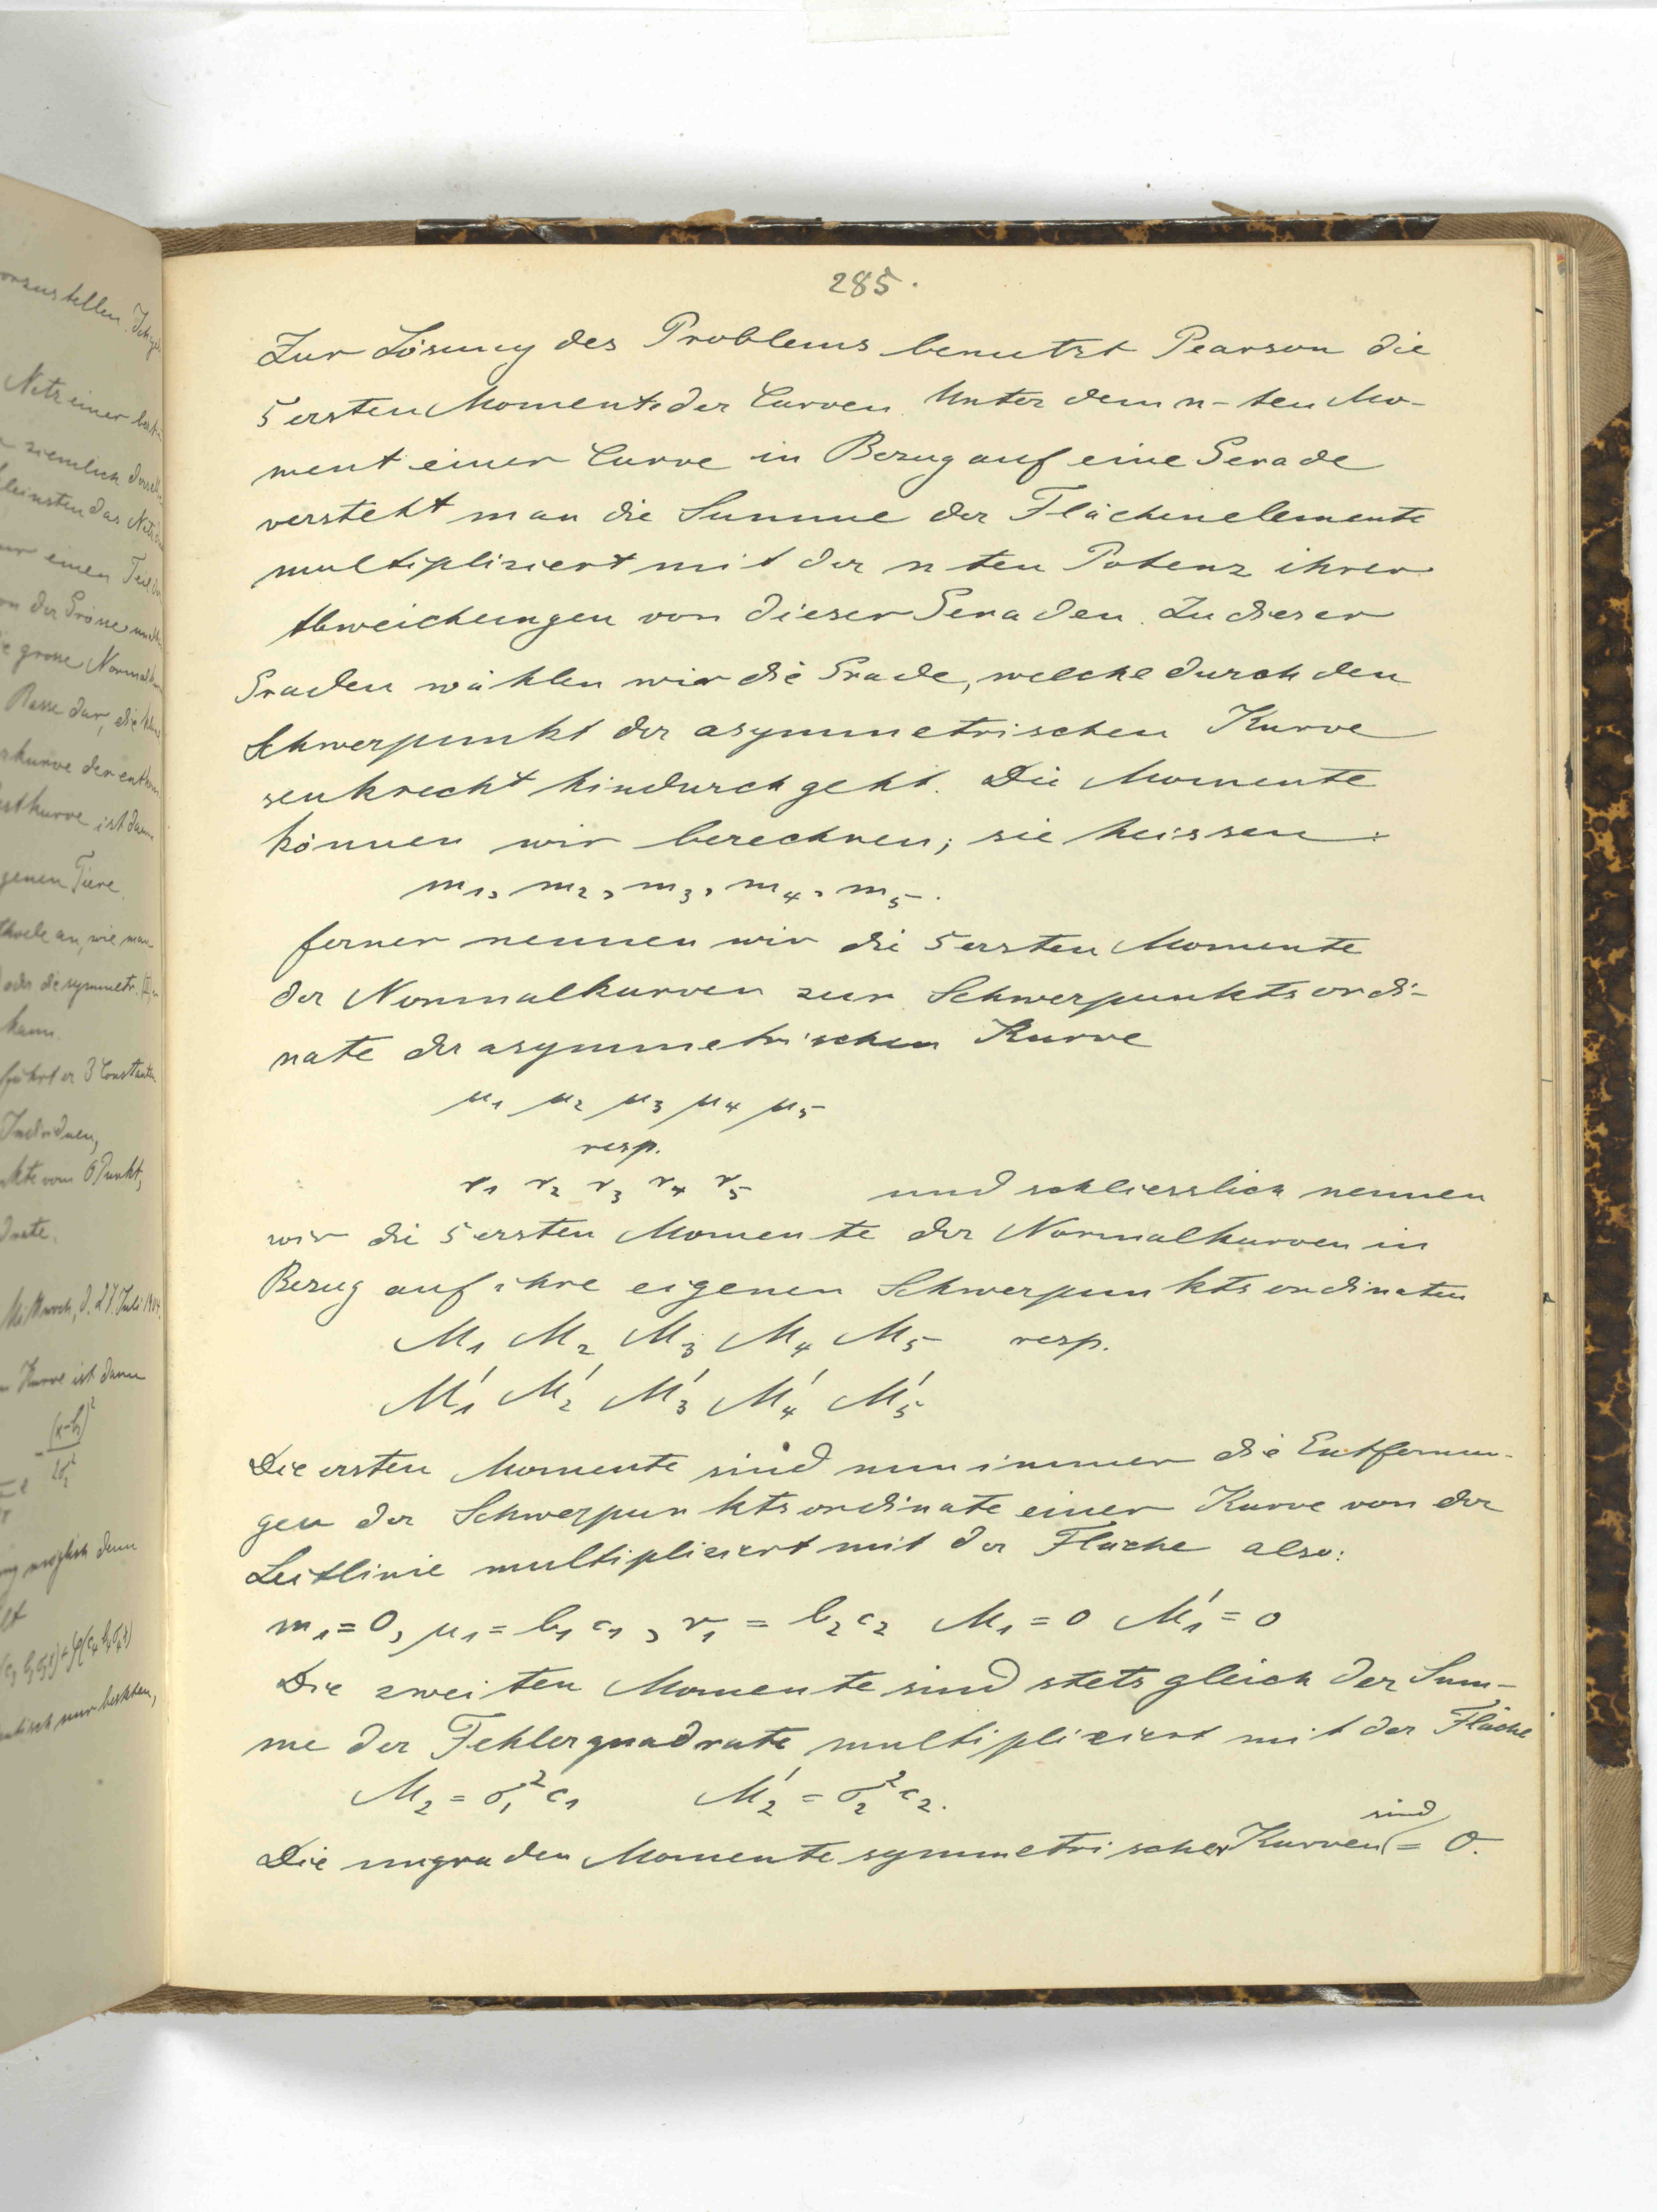 285.
Zur Lösung des Problems benutzt Pearson die
5 ersten Momente der Curven. Unter dem n-ten Mo-
ment einer Curve in Bezug auf eine Gerade
versteht man die Summe der Flächenelemente
multipliziert mit der n ten Potenz ihrer
Abweichungen von dieser Geraden. Zu dieser
Graden wählen wir die Grade, welche durch den
Schwerpunkt der asymmetrischen Kurve
senkrecht hindurchgeht. Die Momente
können wir berechnen; sie heissen:
m₁, m₂, m₃, m₄, m₅.
ferner nennen wir die 5 ersten Momente
der Normalkurven zur Schwerpunktsordi-
nate der asymmetrischen Kurve
μ₁ μ₂ μ₃ μ₄ μ₅
resp.
ν₁ ν₂ ν₃ ν₄ ν₅ und schliesslich nennen
wir die 5 ersten Momente der Normalkurven in
Bezug auf ihre eigenen Schwerpunktsordinaten
M₁ M₂ M₃ M₄ M₅ resp.
M₁' M₂' M₃' M₄' M₅'
Die ersten Momente sind nun immer die Entfernun-
gen der Schwerpunktsordinate einer Kurve von der
Leitlinie multipliziert mit der Fläche also:
m₁ = 0, μ₁ = b₁ c₁, ν₁ = b₂ c₂ M₁ = 0 M₁' = 0
Die zweiten Momente sind stets gleich der Sum-
me der Fehlerquadrate multipliziert mit der Fläche
M₂ = σ₁² c₁ M₂' = σ₂² c₂.
Die ungraden Momente symmetrischer Kurven sind = 0.